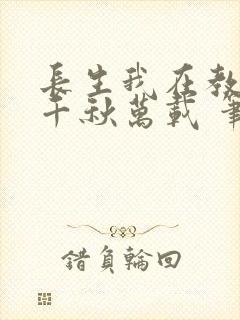 長生我在教
千秋萬載 筆
錯負輪回